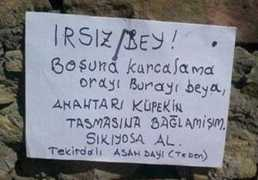 IRSIZ BEY!
Boşuna kurcalama
orayı burayı beya,
ANAHTARI KÜPEKİN
TASMASINA BAĞLAMIŞIM.
SIKIYOSA AL.
Tekirdalı ASAN DAYI